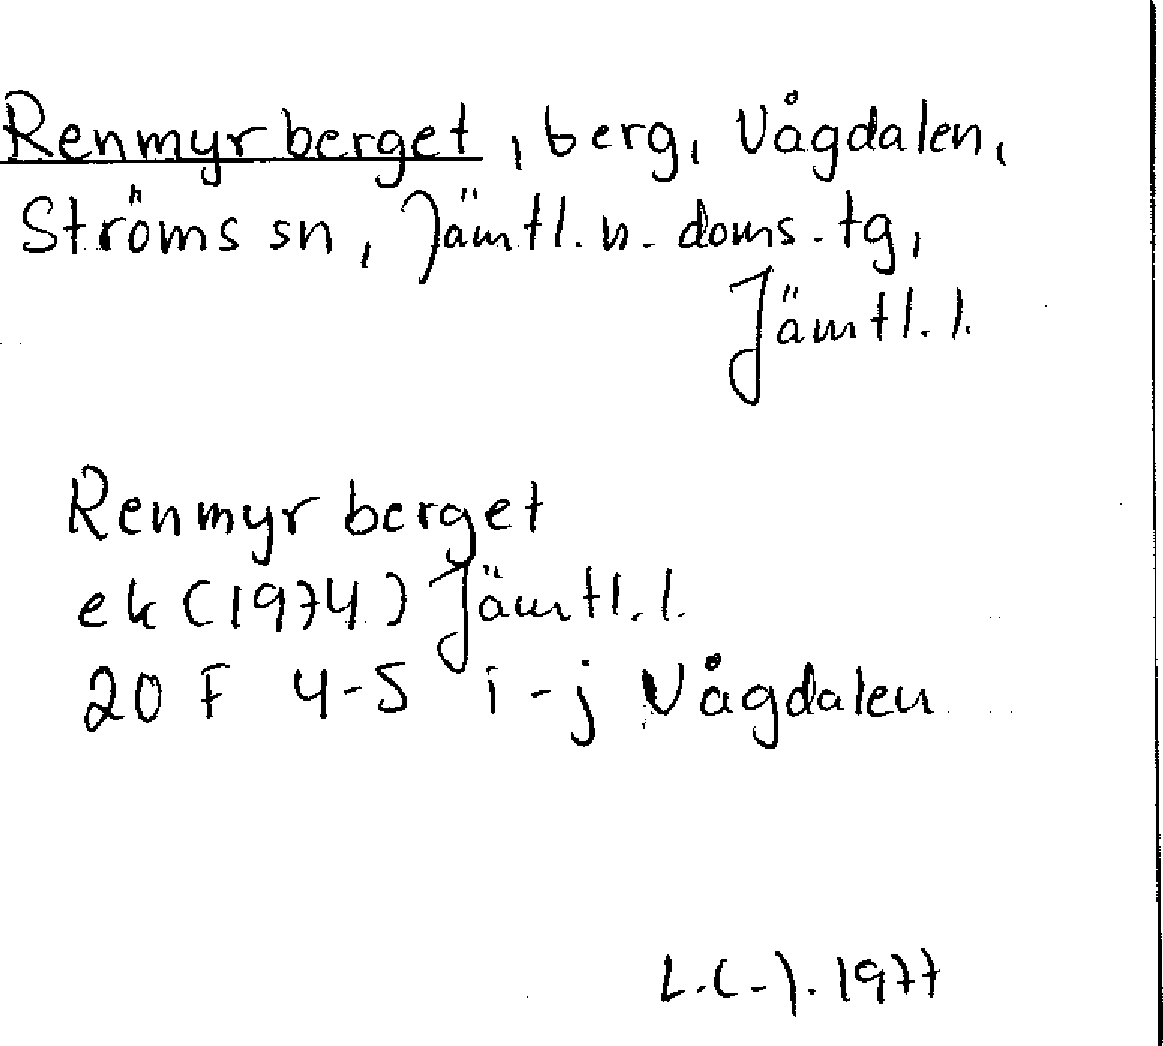 Renmyrberget, berg, Vågdalen,
Ströms sn, Jämtl. n. doms. tg,
Jämtl. l.
Renmyrberget
ek (1974) Jämtl. l.
20 F 4-5 i-j Vågdalen
L.C-). 1977